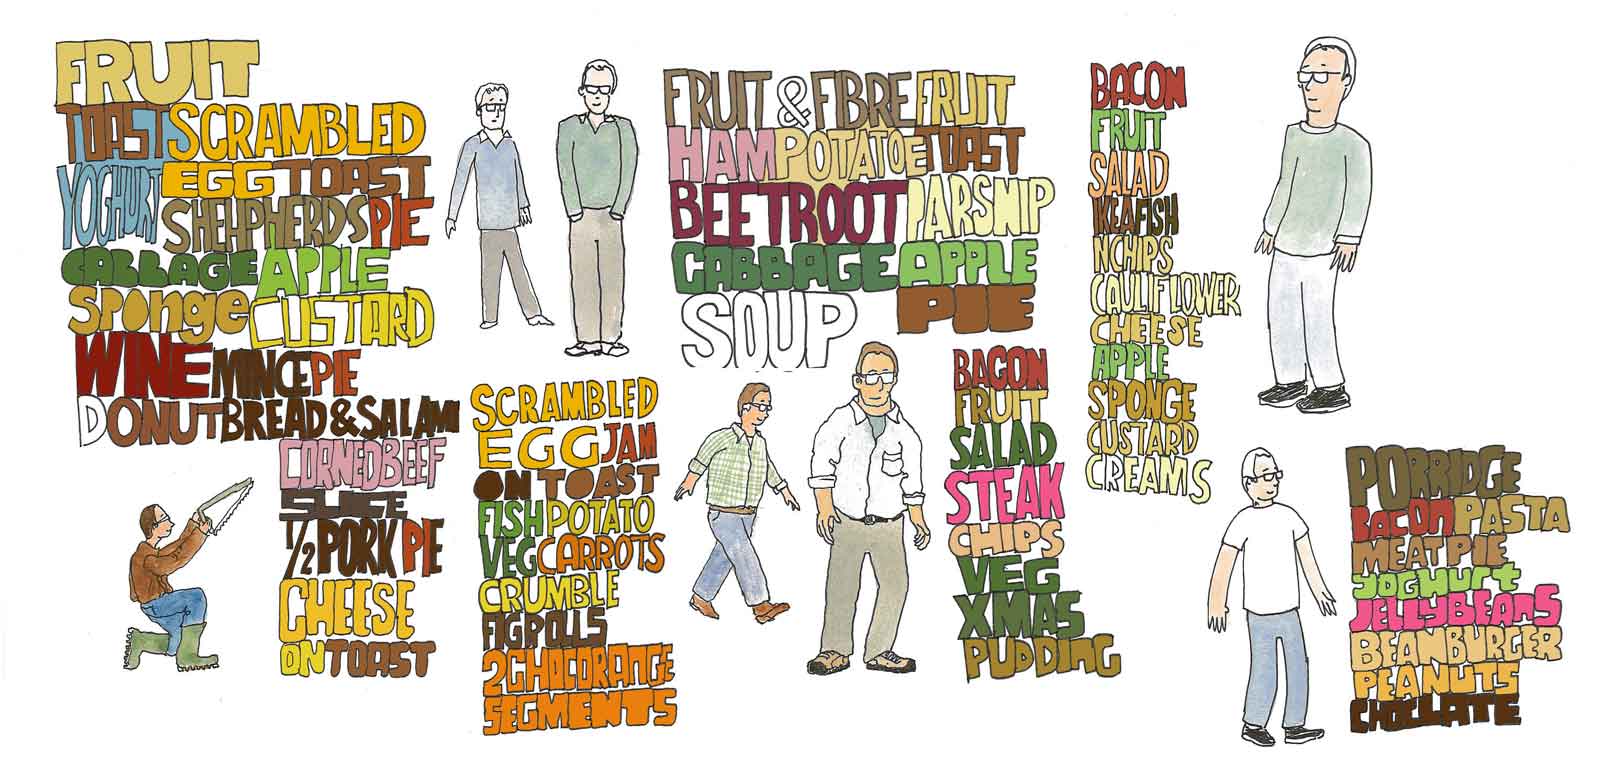 FRUIT
TOAST SCRAMBLED
YOGHURT EGG TOAST
SHEHPHERDS PIE
CABBAGE APPLE
Sponge CUSTARD
WINE MINCE PIE
DONUT BREAD & SALAMI
CORNED BEEF
SLICE
1/2 PORK PIE
CHEESE
ON TOAST
SCRAMBLED
EGG JAM
ON TOAST
FISH POTATO
VEG CARROTS
CRUMBLE
FIGROLLS
2 CHOCORANGE
SEGMENTS
FRUIT & FIBRE FRUIT
HAM POTATOE TOAST
BEETROOT PARSNIP
CABBAGE APPLE
SOUP PIE
BACON
FRUIT
SALAD
STEAK
CHIPS
VEG
XMAS
PUDDING
BACON
FRUIT
SALAD
IKEA FISH
N CHIPS
CAULIFLOWER
CHEESE
APPLE
SPONGE
CUSTARD
CREAMS
PORRIDGE
BACON PASTA
MEAT PIE
YOGHURT
JELLYBEANS
BEANBURGER
PEANUTS
CHOCLATE